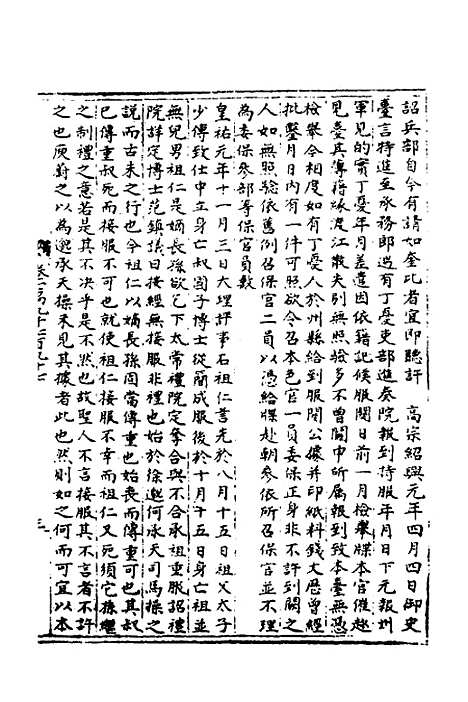 詔兵部自今有請如奎比者宜即聽許　高宗紹興元年四月四日御史
臺言特進至承務郎遇有丁憂吏部進奏院報到持服年月日下元報州
軍見的實丁憂年月差遣因依籍記候服闋日前一月檢舉牒本官催趂
見臺具傳籍緣渡江散失別無照驗多不曾關申所屬報到致本臺無憑
檢舉今相度如有丁憂人於州縣給到服闋公據并印紙料錢文歷曾經
批鑿月日內有一件可照欲令召本色官一員委保正身非不許到闕之
人如無照驗依舊例召保官二員以憑給牒赴朝參依所召保官並不理
為委保參部等保官員數
皇祐元年十一月三日大理評事石祖仁言先於八月十五日祖父太子
少傅致仕中立身亡叔國子博士從簡成服後於十月十五日身亡祖並
無兒男祖仁是嫡長孫欲乞下太常禮院定奪合與不合承祖重服詔禮
院詳定博士范鎮議曰接經無接服非禮也始於徐邈何承天司馬操之
說而古未之行也今祖仁以嫡長孫固當傳重也始喪而傳重可也其叔
已傳重叔死而接服不可也就使祖仁接服不幸而祖仁又死須它孫繼
之制禮之意若是其不決乎是不然也故聖人不言接服其不言者不許
之也庾蔚之以為邈承天操未見其據者此也然則如之何而可宜以本